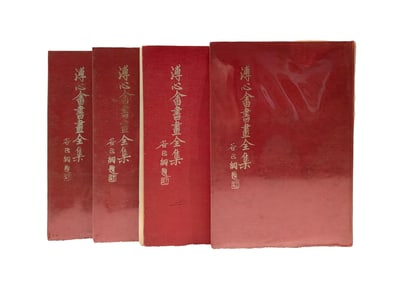 溥心畬書畫全集
谷正綱題
溥心畬書畫全集
谷正綱題
溥心畬書畫全集
谷正綱題
溥心畬書畫全集
谷正綱題